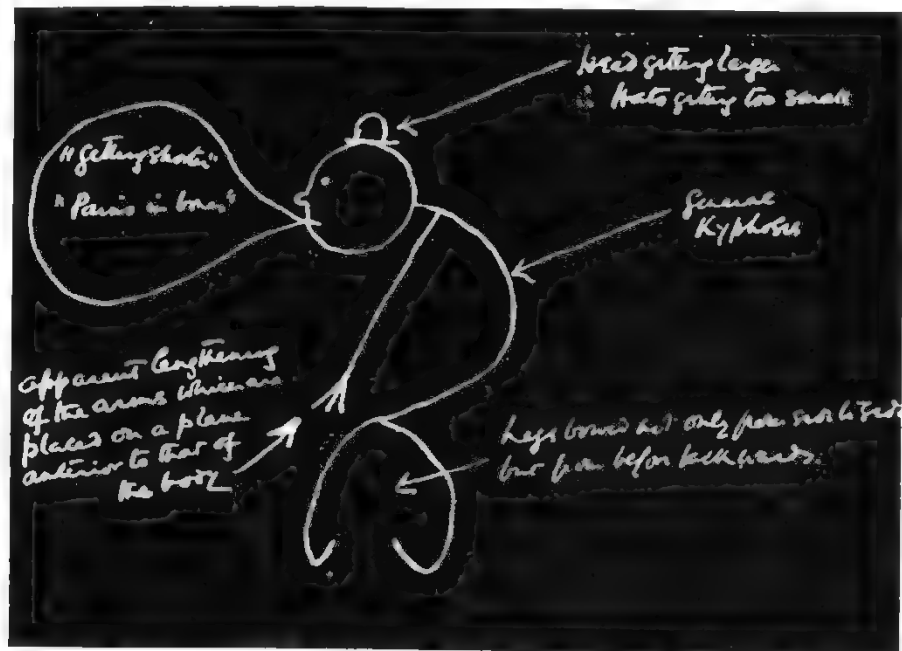 Head getting larger
Hats getting too small
"Getting shorter"
"Pains in bones"
General
Kyphosis
apparent lengthening
of the arms which are
placed on a plane
anterior to that of
the body
Legs bowed not only from side to side
but from before backwards